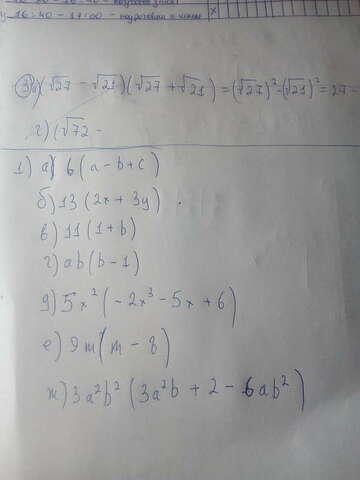 16:40 - 17:00 -
③ б) (√27 - √21)(√27 + √21) = (√27)² - (√21)² = 27 -
г) (√72 -
1) а) 6(a - b + c)
б) 13(2x + 3y)
в) 11(1 + b)
г) ab(b - 1)
д) 5x²(-2x³ - 5x + 6)
е) 9m²(m - 8)
ж) 3a²b²(3a²b + 2 - 6ab²)